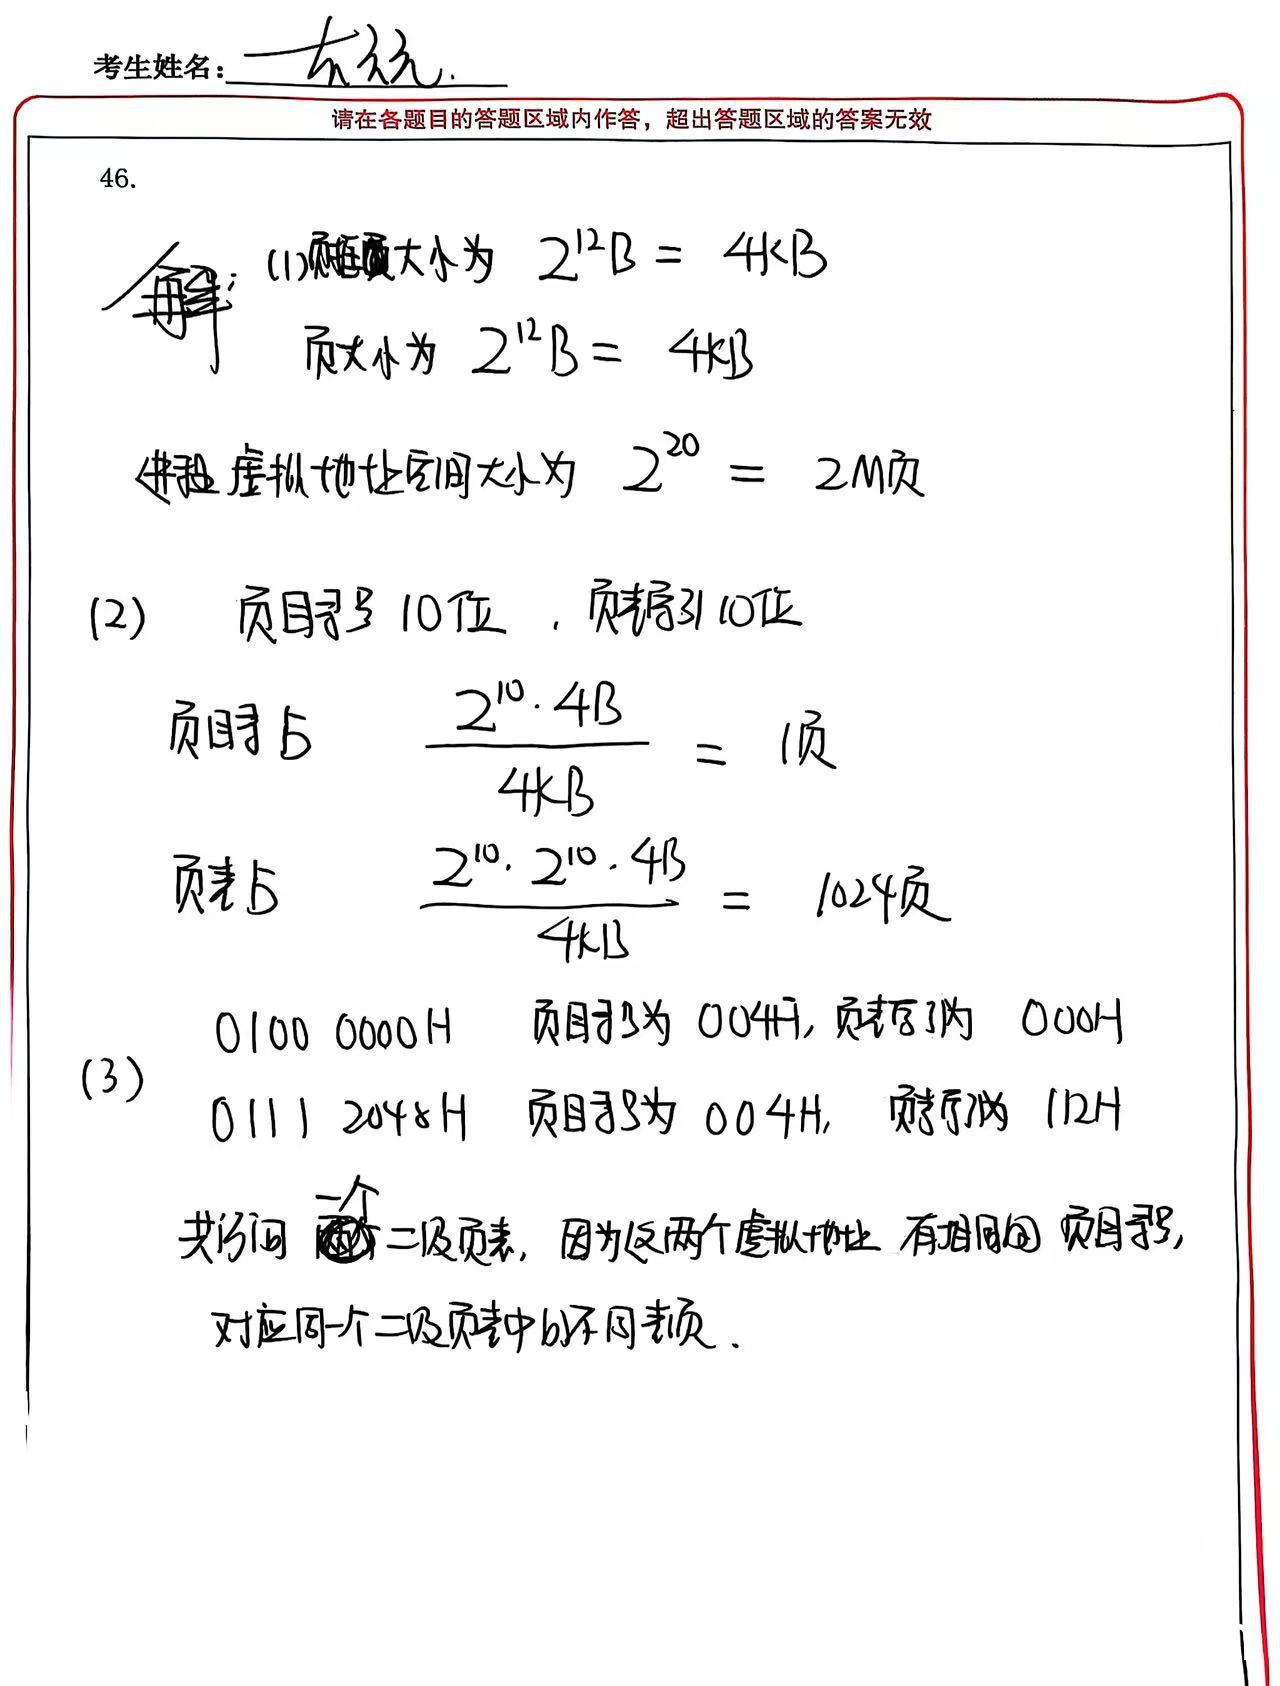 考生姓名:
请在各题目的答题区域内作答，超出答题区域的答案无效
46.
解: (1)页框大小为 2^12B = 4KB
页大小为 2^12B = 4KB
进程虚拟地址空间大小为 2^20 = 2M页
(2) 页目录号10位，页表索引10位
页目录占 2^10·4B / 4KB = 1页
页表占 2^10·2^10·4B / 4KB = 1024页
(3) 0100 0000H 页目录号为 004H, 页表索引为 000H
0111 2048H 页目录号为 004H, 页表索引为 112H
共访问一个二级页表, 因为这两个虚拟地址有相同的页目录号,
对应同一个二级页表中的不同表项.